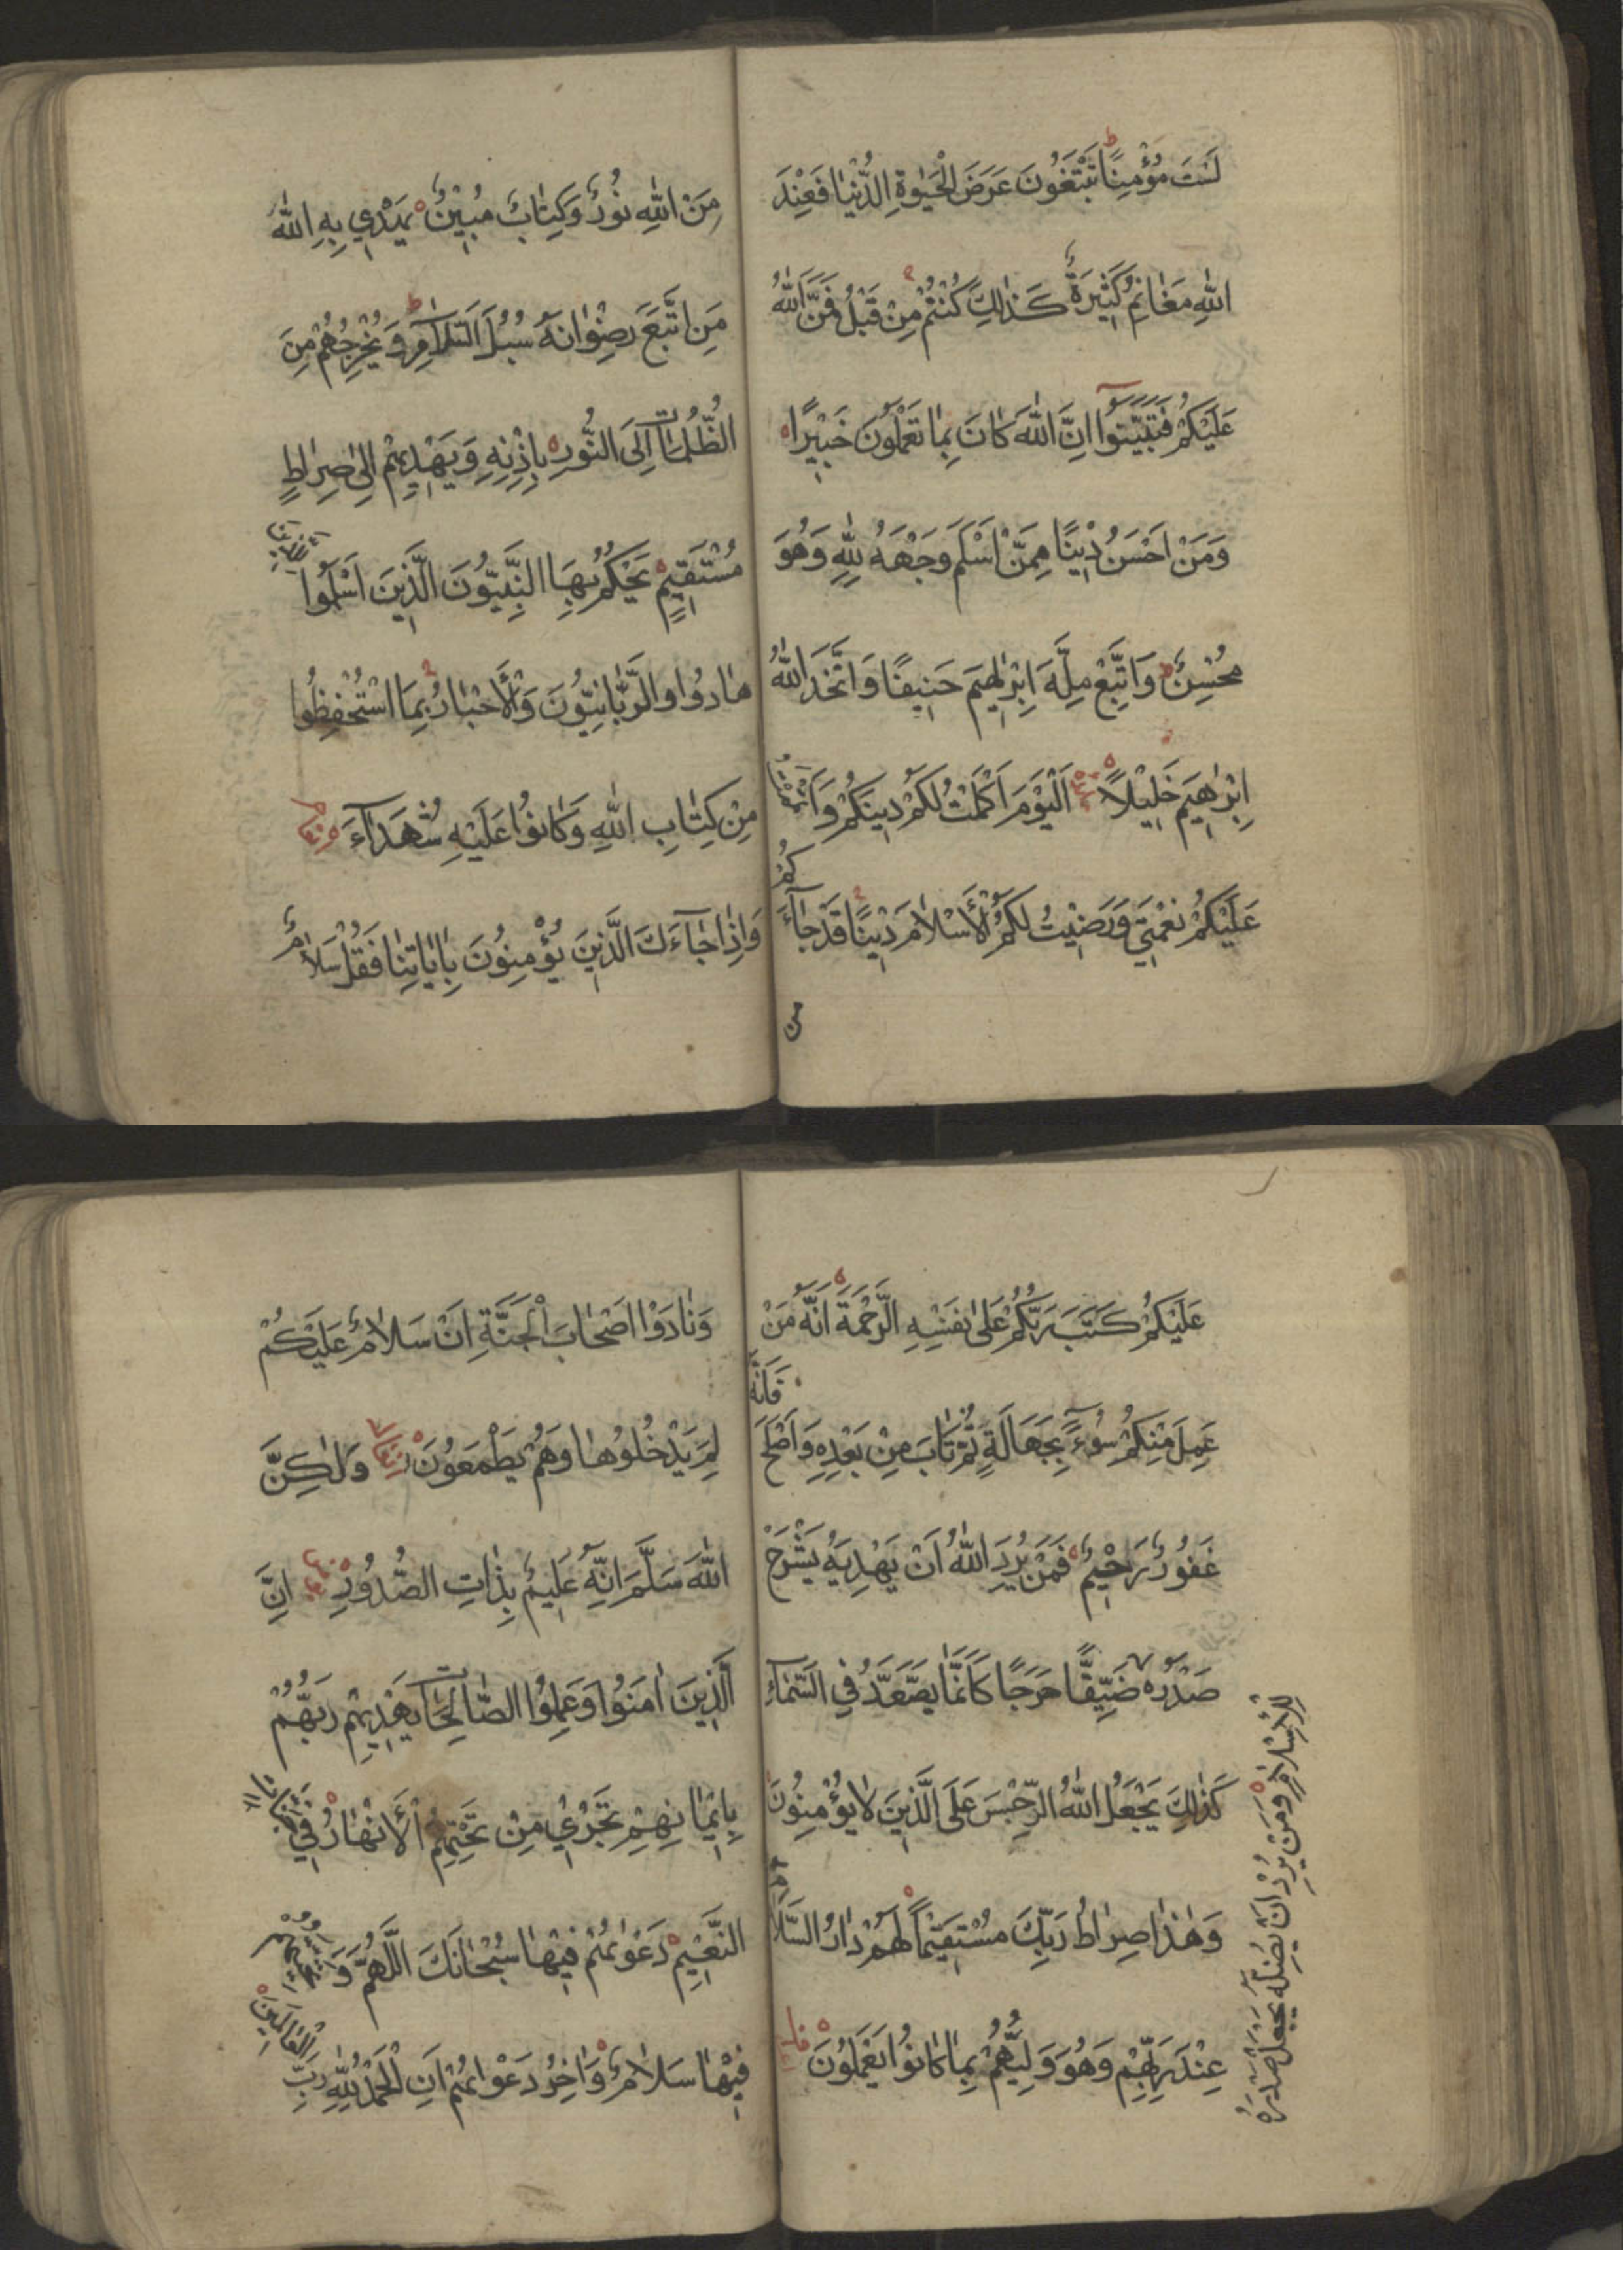 لَسْتَ مُؤْمِنًا تَبْتَغُونَ عَرَضَ الْحَيٰوةِ الدُّنْيَا فَعِنْدَ
اللهِ مَغَانِمُ كَثِيرَةٌ كَذٰلِكَ كُنْتُمْ مِنْ قَبْلُ فَمَنَّ اللهُ
عَلَيْكُمْ فَتَبَيَّنُوا اِنَّ اللهَ كَانَ بِمَا تَعْمَلُونَ خَبِيْرًا
وَمَنْ اَحْسَنُ دِيْنًا مِمَّنْ اَسْلَمَ وَجْهَهُ لِلّٰهِ وَهُوَ
مُحْسِنٌ وَاتَّبَعَ مِلَّةَ اِبْرٰهِيمَ حَنِيفًا وَاتَّخَذَ اللهُ
اِبْرٰهِيمَ خَلِيْلًا اَلْيَوْمَ اَكْمَلْتُ لَكُمْ دِينَكُمْ وَاَتْمَمْتُ
عَلَيْكُمْ نِعْمَتِي وَرَضِيْتُ لَكُمُ الْاِسْلَامَ دِيْنًا قَدْ جَآءَكُمْ
من
مِنَ اللهِ نُورٌ وَكِتَابٌ مُبِيْنٌ يَهْدِي بِهِ اللهُ
مَنِ اتَّبَعَ رِضْوَانَهُ سُبُلَ السَّلَامِ وَيُخْرِجُهُمْ مِنَ
الظُّلُمَاتِ اِلَى النُّورِ بِاِذْنِهِ وَيَهْدِيهِمْ اِلٰى صِرَاطٍ
مُسْتَقِيمٍ يَحْكُمُ بِهَا النَّبِيُّونَ الَّذِينَ اَسْلَمُوا لِلَّذِينَ
هَادُوا وَالرَّبَّانِيُّونَ وَالْاَحْبَارُ بِمَا اسْتُحْفِظُوا
مِنْ كِتَابِ اللهِ وَكَانُوا عَلَيْهِ شُهَدَآءَ
وَاِذَا جَآءَكَ الَّذِينَ يُؤْمِنُونَ بِاٰيَاتِنَا فَقُلْ سَلَامٌ
عَلَيْكُمْ كَتَبَ رَبُّكُمْ عَلٰى نَفْسِهِ الرَّحْمَةَ اَنَّهُ مَنْ
عَمِلَ مِنْكُمْ سُوءً بِجَهَالَةٍ ثُمَّ تَابَ مِنْ بَعْدِهِ وَاَصْلَحَ فَاَنَّهُ
غَفُورٌ رَحِيْمٌ فَمَنْ يُرِدِ اللهُ اَنْ يَهْدِيَهُ يَشْرَحْ
صَدْرَهُ ضَيِّقًا حَرَجًا كَاَنَّمَا يَصَّعَّدُ فِي السَّمَآءِ
لِلْاِسْلَامِ وَمَنْ يُرِدْ اَنْ يُضِلَّهُ يَجْعَلْ صَدْرَهُ
كَذٰلِكَ يَجْعَلُ اللهُ الرِّجْسَ عَلَى الَّذِينَ لَا يُؤْمِنُونَ
وَهٰذَا صِرَاطُ رَبِّكَ مُسْتَقِيْمًا لَهُمْ دَارُ السَّلَامِ
عِنْدَ رَبِّهِمْ وَهُوَ وَلِيُّهُمْ بِمَا كَانُوا يَعْمَلُونَ
وَنَادَوْا اَصْحَابَ الْجَنَّةِ اَنْ سَلَامٌ عَلَيْكُمْ
لَمْ يَدْخُلُوهَا وَهُمْ يَطْمَعُونَ وَلٰكِنَّ
اللهَ سَلَّمَ اِنَّهُ عَلِيمٌ بِذَاتِ الصُّدُورِ اِنَّ
الَّذِينَ اٰمَنُوا وَعَمِلُوا الصَّالِحَاتِ يَهْدِيهِمْ رَبُّهُمْ
بِاِيْمَانِهِمْ تَجْرِي مِنْ تَحْتِهِمُ الْاَنْهَارُ فِي جَنَّاتِ
النَّعِيْمِ دَعْوٰيهُمْ فِيْهَا سُبْحَانَكَ اللّٰهُمَّ وَتَحِيَّتُهُمْ
فِيْهَا سَلَامٌ وَاٰخِرُ دَعْوٰيهُمْ اَنِ الْحَمْدُ لِلّٰهِ رَبِّ الْعَالَمِيْنَ